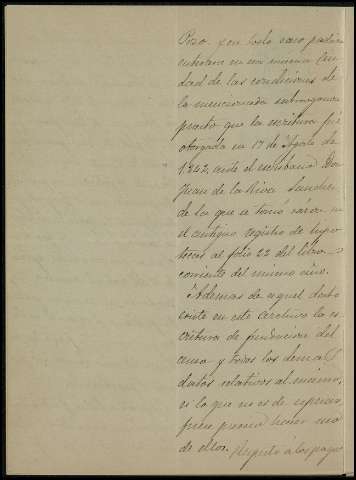 Pozo y en todo caso podria
enterarse en esa misma Ciu
dad de las condiciones de
la mencionada subrogacion
puesto que la escritura fué
otorgada en 17 de Agosto de
1.842, ante el escribano Don
Juan de la Riva Sanchez
de la que se tomó razon en
el antiguo registro de hipo
tecas al folio 22 del libro
corriente del mismo año.
Ademas de aquel dato
existe en este Archivo la es
critura de fundacion del
censo y todos los demas
datos relativos al mismo,
si lo que no es de esperar,
fuere preciso hacer uso
de ellos. Respecto á los pagos